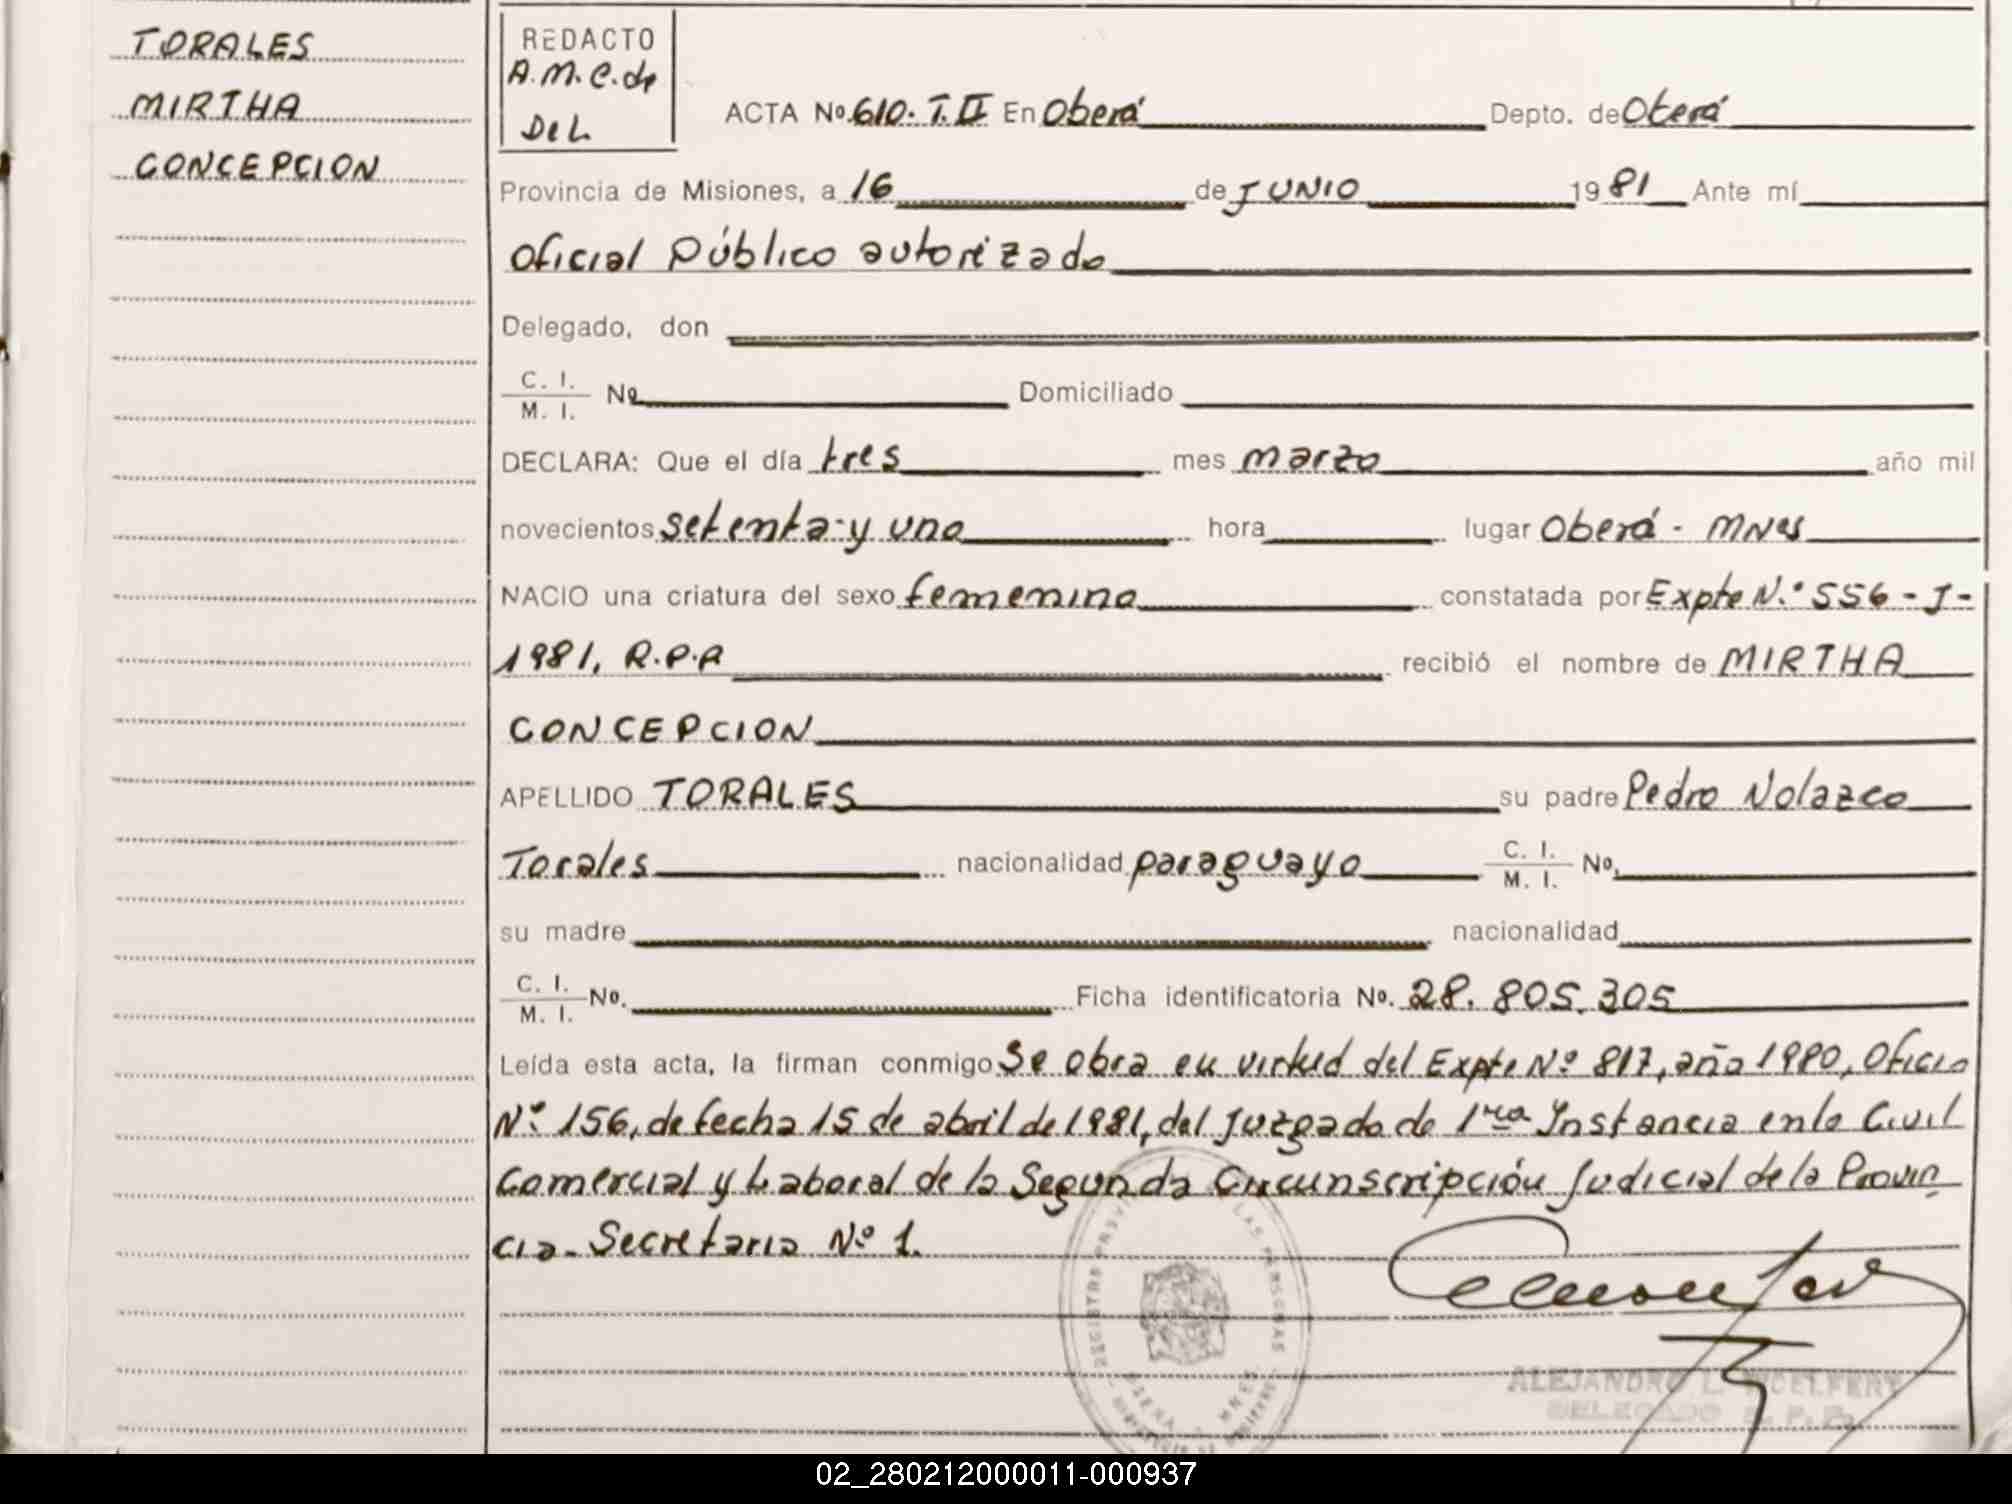 TORALES
MIRTHA
CONCEPCION
REDACTO
A.M.C.de
DeL
ACTA No. 610. T.II En Oberá Depto. de Oberá
Provincia de Misiones, a 16 de JUNIO 1981 Ante mí
Oficial Público autorizado
Delegado, don
C. I.
M. I. No Domiciliado
DECLARA: Que el día tres mes marzo año mil
novecientos setenta y uno hora lugar Oberá - MNes
NACIO una criatura del sexo femenino constatada por Expte N.º 556 - J -
1981, R.P.P recibió el nombre de MIRTHA
CONCEPCION
APELLIDO TORALES su padre Pedro Nolazco
Torales nacionalidad paraguayo C. I. M. I. No.
su madre nacionalidad
C. I.
M. I. No. Ficha identificatoria No. 28.805.305
Leída esta acta, la firman conmigo Se obra en virtud del Expte Nº 817, año 1980, Oficio
Nº 156, de fecha 15 de abril de 1981, del Juzgado de 1ra Instancia en lo Civil
Comercial y Laboral de la Segunda Circunscripción Judicial de la Provin
cia - Secretaria Nº 1.
REGISTRO LAS PERSONAS
ALEJANDRO L.
DELEGADO R. P. P.
02_280212000011-000937